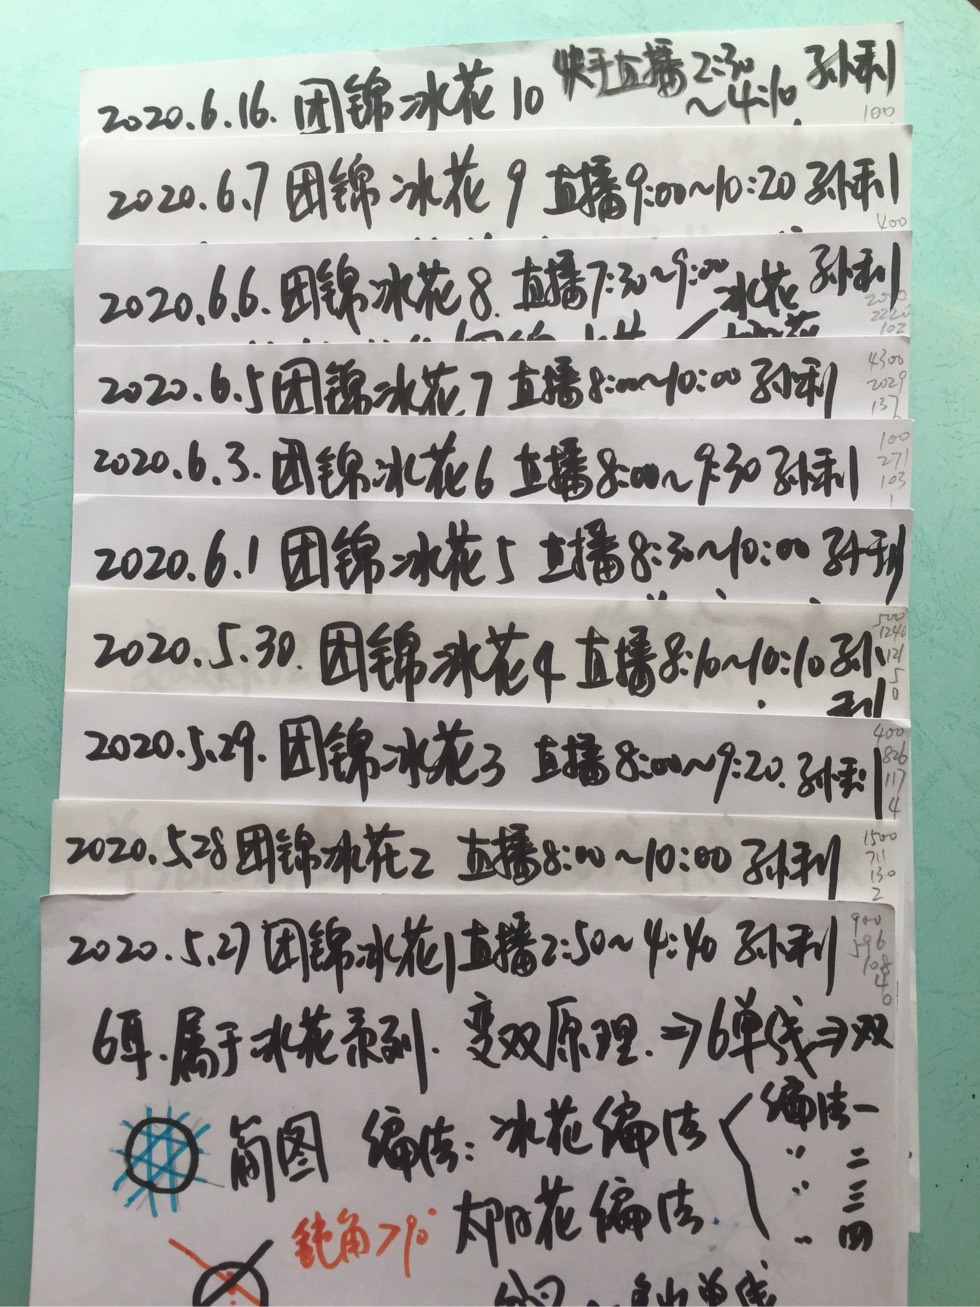 2020.6.16. 团锦冰花10 快手直播2:30~4:10 孙利
100
2020.6.7 团锦冰花9 直播9:00~10:20 孙利
400
2020.6.6. 团锦冰花8. 直播7:30~9:00 孙利
冰花
102
2020.6.5 团锦冰花7 直播8:00~10:00 孙利
4300
2029
137
2020.6.3. 团锦冰花6 直播8:00~9:30 孙利
100
271
103
1
2020.6.1 团锦冰花5 直播8:30~10:00 孙利
2020.5.30. 团锦冰花4 直播8:10~10:10 孙利
500
1246
121
5
0
2020.5.29. 团锦冰花3 直播8:00~9:20. 孙利
400
826
117
4
2020.5.28 团锦冰花2 直播8:00~10:00 孙利
1500
711
130
2
2020.5.27 团锦冰花1 直播2:50~4:40 孙利
900
596
108
4
0
6耳.属于冰花系列. 变双原理.⇒6单线⇒双
简图 编法: 冰花编法 编法一
〃 二
〃 三
太阳花编法. 〃 四
钝角>90°